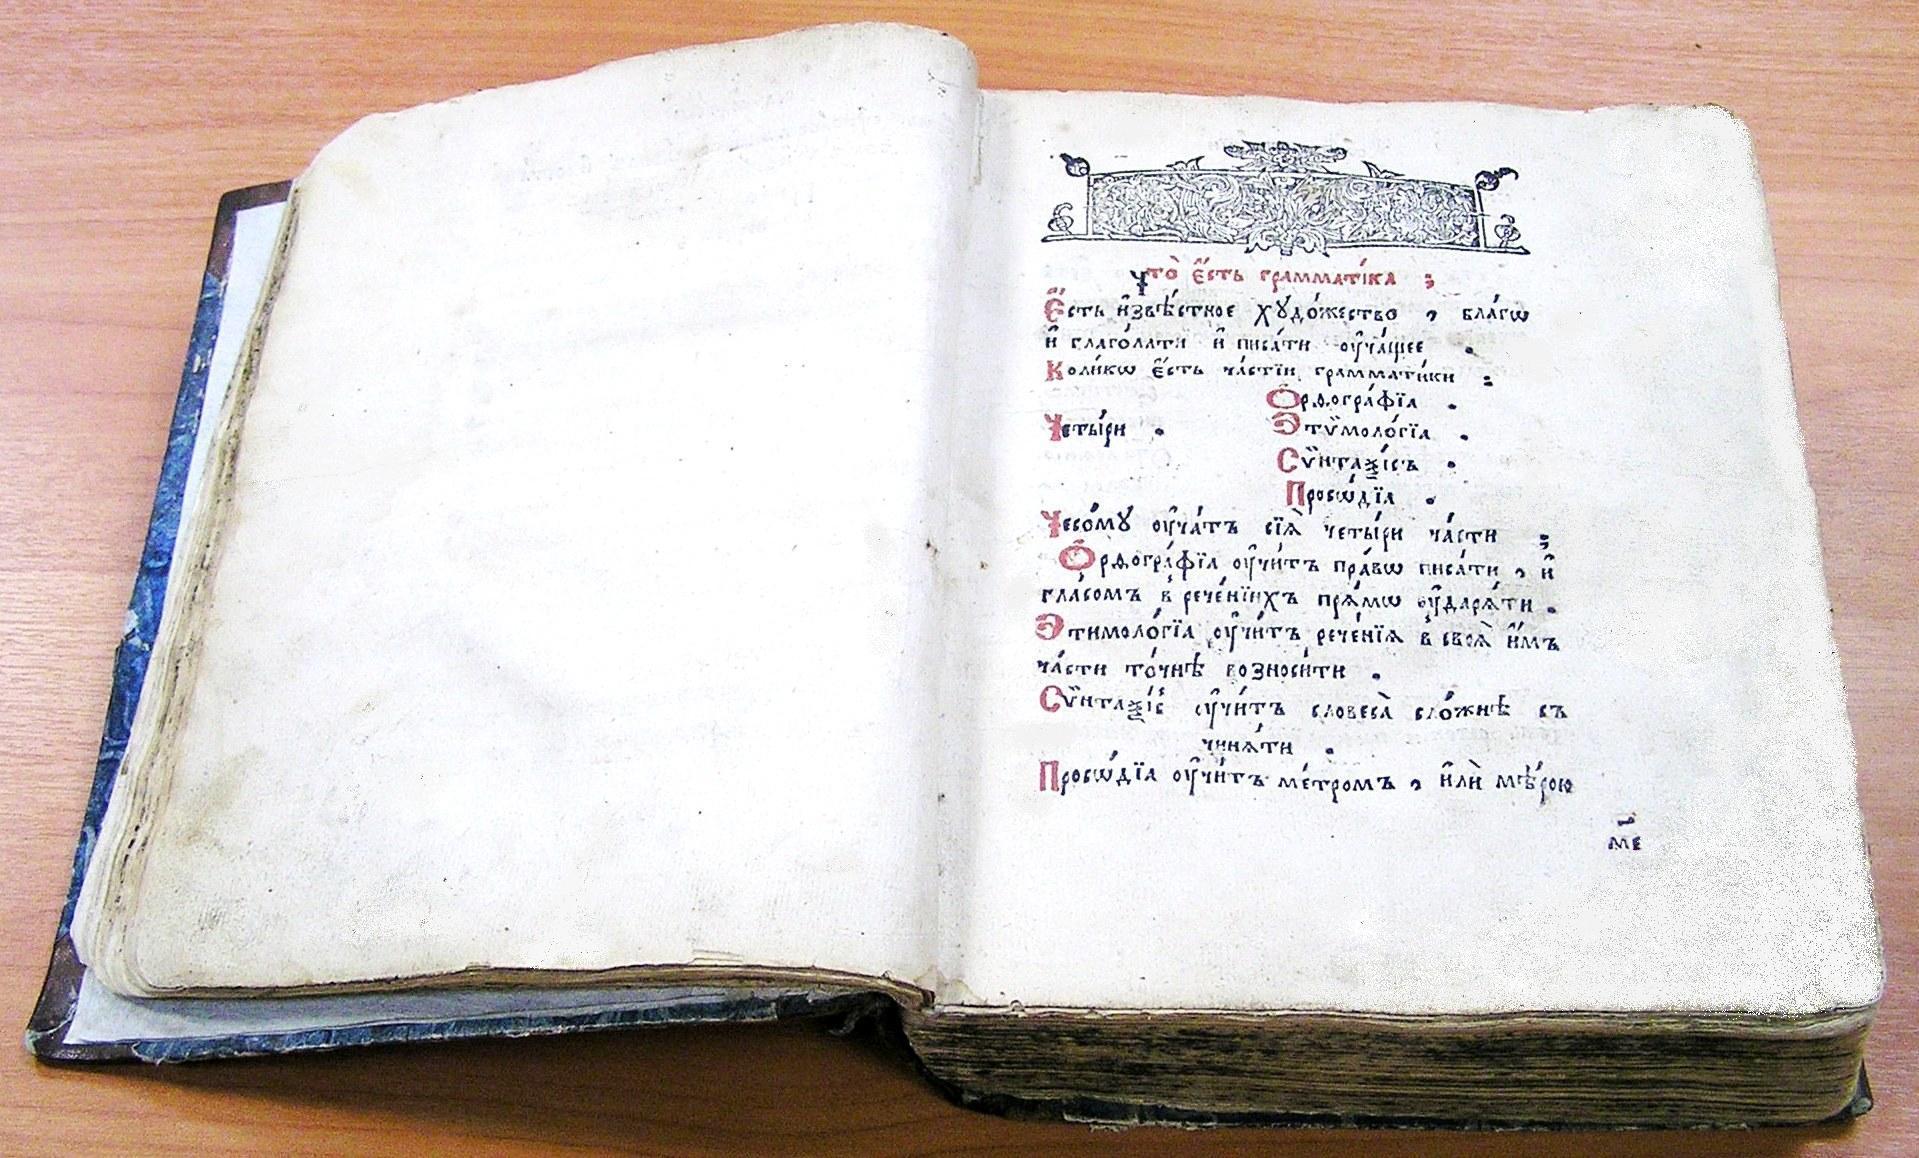 Что̀ є҆́сть грамматі́ка ;
Є҆́сть и҆звѣ́стное хꙋдо́жество , бла́гѡ
и҆ глаго́лати и҆ писа́ти ᲂу҆ча́щее .
Коли́кѡ є҆́сть ча́стїи грамматі́ки ;
Ѻ҆рѳогра́фїа .
Четы́ри . Э҆тѷмоло́гїа .
Сѷ́нтаѯісъ .
Просѡ́дїа .
Чесомꙋ́ ᲂу҆ча́тъ сїѧ̀ четы́ри ча́сти ;
Ѻ҆рѳогра́фїа ᲂу҆чи́тъ пра́вѡ писа́ти , и҆
гла́сомъ в̾ рече́нїихъ прѧ́мѡ ᲂу҆дарѧ́ти .
Э҆тимоло́гїа ᲂу҆чи́тъ рече́нїѧ в̾ своѧ̀ и҆̀мъ
ча́сти то́чнѣ возноси́ти .
Сѷ́нтаѯіс ᲂу҆чи́тъ словеса̀ сло́жнѣ съ
чинѧ́ти .
Просѡ́дїа ᲂу҆чи́тъ ме́тромъ , и҆лѝ мѣ́рою
ме